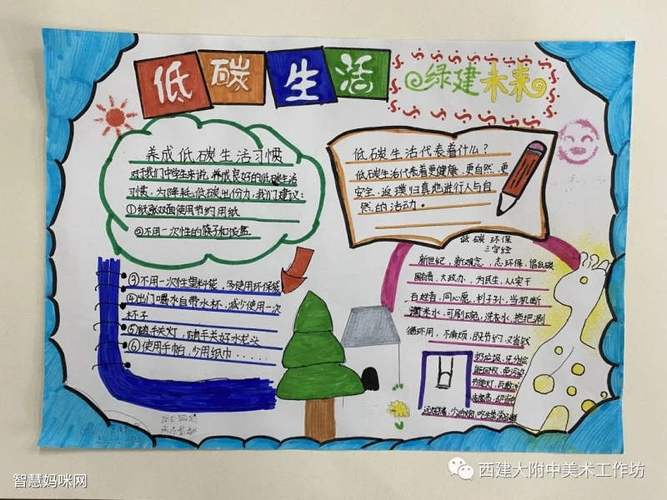 低碳生活
绿建未来
养成低碳生活习惯
对于我们中学生来说,养成良好的低碳生活
习惯,为降耗低碳出份力,我们建议:
①纸张双面使用节约用纸
②不用一次性的筷子和饭盒
③不用一次性塑料袋,多使用环保袋
④出门喝水自带水杯,减少使用一次
杯子
⑤随手关灯,随手关好水龙头
⑥使用手帕,少用纸巾……
低碳生活代表着什么?
低碳生活代表着更健康、更自然、更
安全,返璞归真地进行人与自
然的活动。
低碳环保
三字经
新世纪,新观念,志环保,倡低碳
为民生,
百姓看,同心愿,利子孙,当积攒
可刷碗,洗衣水,把把涮
循环用,不麻烦,既节约,又省钱
智慧妈咪网
西建大附中美术工作坊